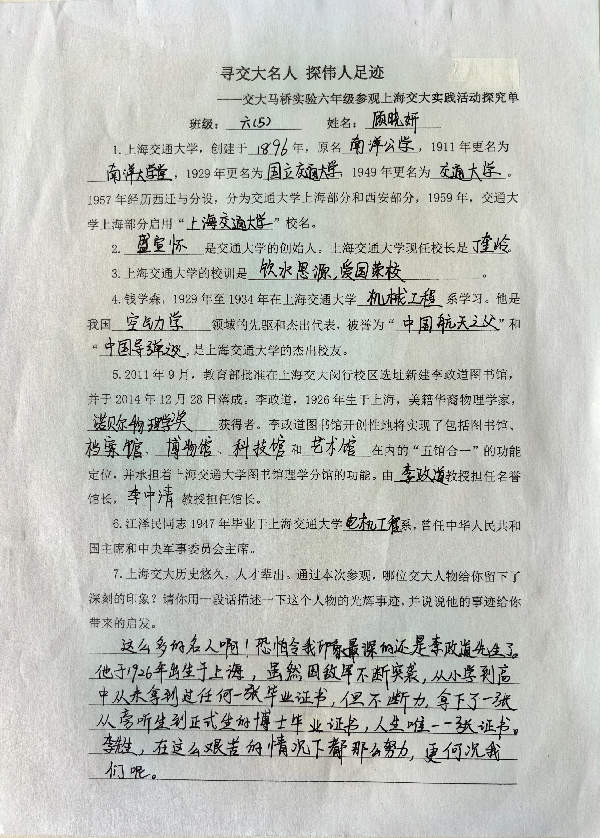 寻交大名人 探伟人足迹
——交大马桥实验六年级参观上海交大实践活动探究单
班级：六(5) 姓名：顾晓妍
1.上海交通大学，创建于1896年，原名南洋公学，1911年更名为
南洋大学堂，1929年更名为国立交通大学，1949年更名为交通大学。
1957年经历西迁与分设，分为交通大学上海部分和西安部分，1959年，交通大
学上海部分启用“上海交通大学”校名。
2.盛宣怀是交通大学的创始人。上海交通大学现任校长是丁奎岭。
3.上海交通大学的校训是饮水思源，爱国荣校。
4.钱学森，1929年至1934年在上海交通大学机械工程系学习。他是
我国空气动力学领域的先驱和杰出代表，被誉为“中国航天之父”和
“中国导弹之父”，是上海交通大学的杰出校友。
5.2011年9月，教育部批准在上海交大闵行校区选址新建李政道图书馆，
并于2014年12月28日落成。李政道，1926年生于上海，美籍华裔物理学家，
诺贝尔物理学奖获得者。李政道图书馆开创性地将实现了包括图书馆、
档案馆、博物馆、科技馆和艺术馆在内的“五馆合一”的功能
定位，并承担着上海交通大学图书馆理学分馆的功能。由李政道教授担任名誉
馆长，李中清教授担任馆长。
6.江泽民同志1947年毕业于上海交通大学电机工程系，曾任中华人民共和
国主席和中央军事委员会主席。
7.上海交大历史悠久，人才辈出。通过本次参观，哪位交大人物给你留下了
深刻的印象？请你用一段话描述一下这个人物的光辉事迹，并说说他的事迹给你
带来的启发。
这么多的名人啊！恐怕令我印象最深的还是李政道先生了。
他于1926年出生于上海，虽然因敌军不断突袭，从小学到高
中从未拿到过任何一张毕业证书，但不断努力，拿下了一张
从旁听生到正式生的博士毕业证书，人生唯一一张证书。
李先生，在这么艰苦的情况下都那么努力，更何况我
们呢。